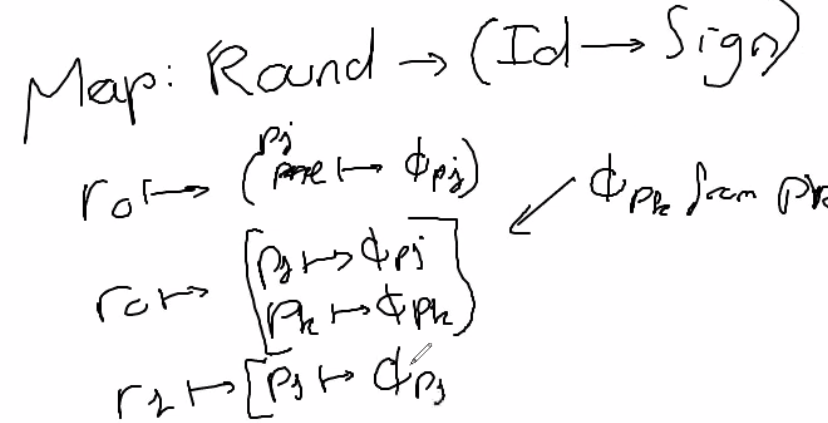 Map: Round → (Id → Sign)
r₀ ↦ (pj ↦ ϕpj)
ϕpk from pk
r₀ ↦ [pj ↦ ϕpj
pk ↦ ϕpk]
r₁ ↦ [pj ↦ ϕpj